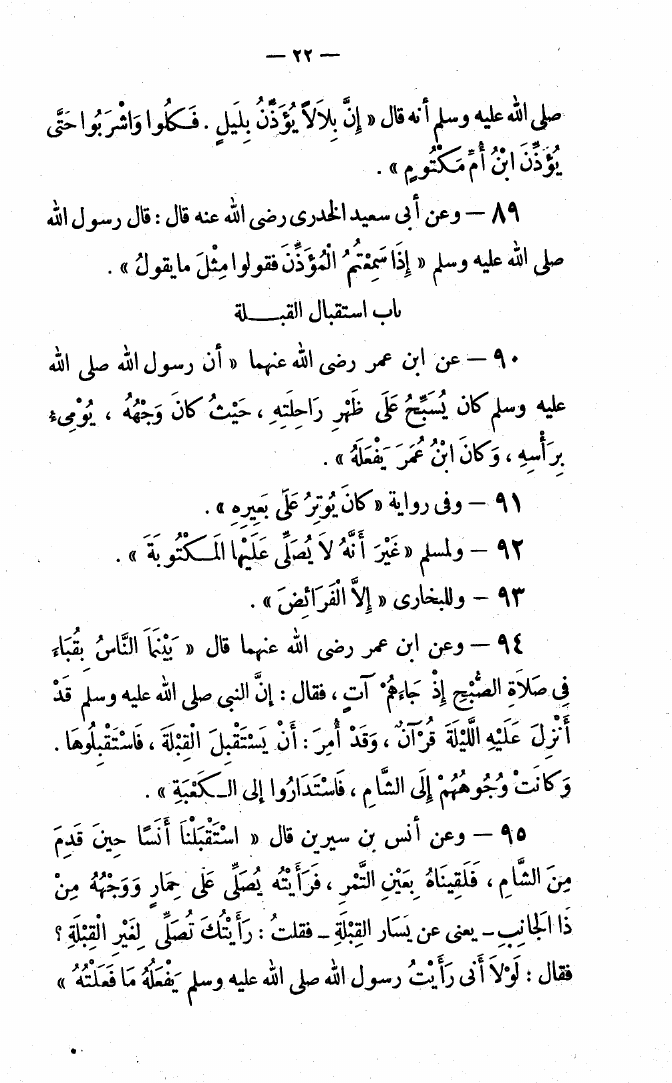 — ٢٢ —
صلى الله عليه وسلم أنه قال « إِنَّ بِلَالاً يُؤَذِّنُ بِلَيلٍ . فَكُلُوا وَاشْرَبُوا حَتَّى
يُؤَذِّنَ ابْنُ أُمِّ مَكْتُومٍ » .
٨٩ — وعن أبى سعيد الخدرى رضى الله عنه قال : قال رسول الله
صلى الله عليه وسلم « إِذَا سَمِعْتُمُ الْمُؤَذِّنَ فقولوا مِثْلَ مايقولُ » .
باب استقبال القبلة
٩٠ — عن ابن عمر رضى الله عنهما « أن رسول الله صلى الله
عليه وسلم كان يُسَبِّحُ عَلَى ظَهْرِ رَاحِلَتِهِ ، حَيْثُ كانَ وَجْهُهُ ، يُوْمِىء
بِرَأْسِهِ ، وَكانَ ابْنُ عُمَرَ يَفْعَلَهُ » .
٩١ — وفى رواية « كانَ يُوتِرُ عَلَى بَعِيرِهِ » .
٩٢ — ولمسلم « غَيْرَ أَنَّهُ لاَ يُصَلِّى عَلَيْها الَمكْتُوبَةَ » .
٩٣ — وللبخارى « إلاَّ الْفَرَائِضَ » .
٩٤ — وعن ابن عمر رضى الله عنهما قال « بَيْنَمَا النَّاسُ بِقُبَاءَ
فِى صَلاَةِ الصُّبْحِ إِذْ جَاءَهُمْ آتٍ ، فقال : إنَّ النبي صلى الله عليه وسلم قَدْ
أُنْزِلَ عَلَيْهِ اللَّيْلَةَ قُرْآنٌ ، وَقَدْ أُمِرَ : أَنْ يَسْتَقْبِلَ الْقِبْلَةَ ، فَاسْتَقْبِلُوهَا .
وَكانَتْ وُجُوهُهُمْ إِلَى الشَّامِ ، فَاسْتَدَارُوا إلى الكَعْبَةِ » .
٩٥ — وعن أنس بن سيرين قال « اسْتَقْبَلْنَا أَنَسًا حِينَ قَدِمَ
مِنَ الشَّامِ ، فَلَقِينَاهُ بِعَيْنِ التَّمْرِ ، فَرَأَيْتُه يُصَلِّى عَلَى حِمَارٍ وَوَجْهُهُ مِنْ
ذَا الجَانِبِ - يعنى عن يَسَارِ القِبْلَةِ - فقلتُ : رَأَيْتُكَ تُصَلِّى لِغَيْرِ الْقِبْلَةِ ؟
فقال : لَوْلاَ أنى رَأَيْتُ رسول الله صلى الله عليه وسلم يَفْعَلُهُ مَا فَعَلْتُهُ »